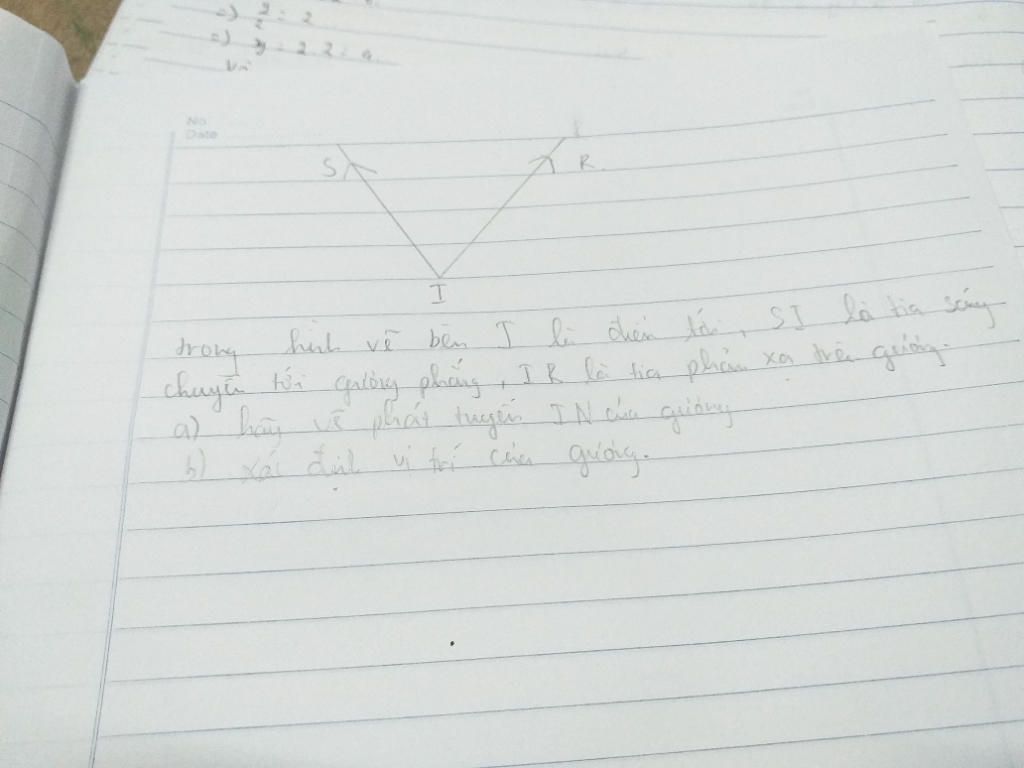 =) = 2
=) y = 2.2 =
Vì
No
Date
S
R.
I
trong hình vẽ bên I là điểm tới, SI là tia sáng
chuyền tới gương phẳng, IR là tia phản xạ trên gương.
a) hãy vẽ phát tuyến IN của gương
b) xác định vị trí của gương.